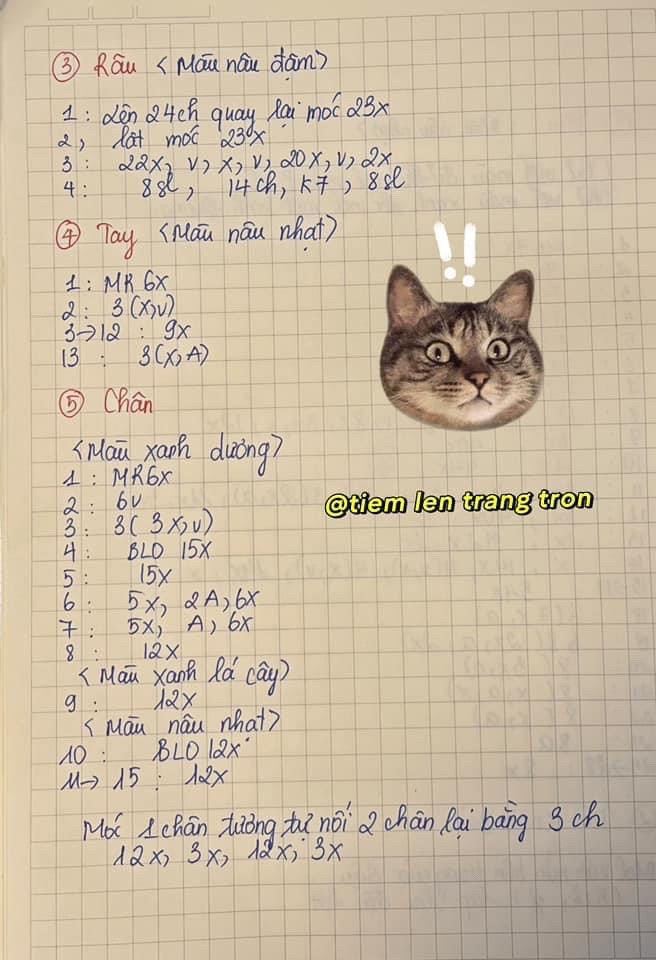 ③ Râu <Màu nâu đậm>
1 : Lên 24ch quay lại móc 23x
2, lật móc 23x
3 : 22x, v, x, v, 20x, v, 2x
4 : 8sl, 14ch, k7, 8sl
④ Tay <Màu nâu nhạt>
1 : MR 6x
2 : 3(x,v)
3→12 : 9x
13 : 3(x,A)
⑤ Chân
<Màu xanh dương>
1 : MR6x
2 : 6v
3 : 3( 3x,v)
4 : BLO 15x
5 : 15x
6 : 5x, 2A, 6x
7 : 5x, A, 6x
8 : 12x
<Màu xanh lá cây>
9 : 12x
<Màu nâu nhạt>
10 : BLO 12x
11→ 15 : 12x
Móc 1 chân tương tự nối 2 chân lại bằng 3 ch
12x, 3x, 12x, 3x
!!
@tiem len trang tron